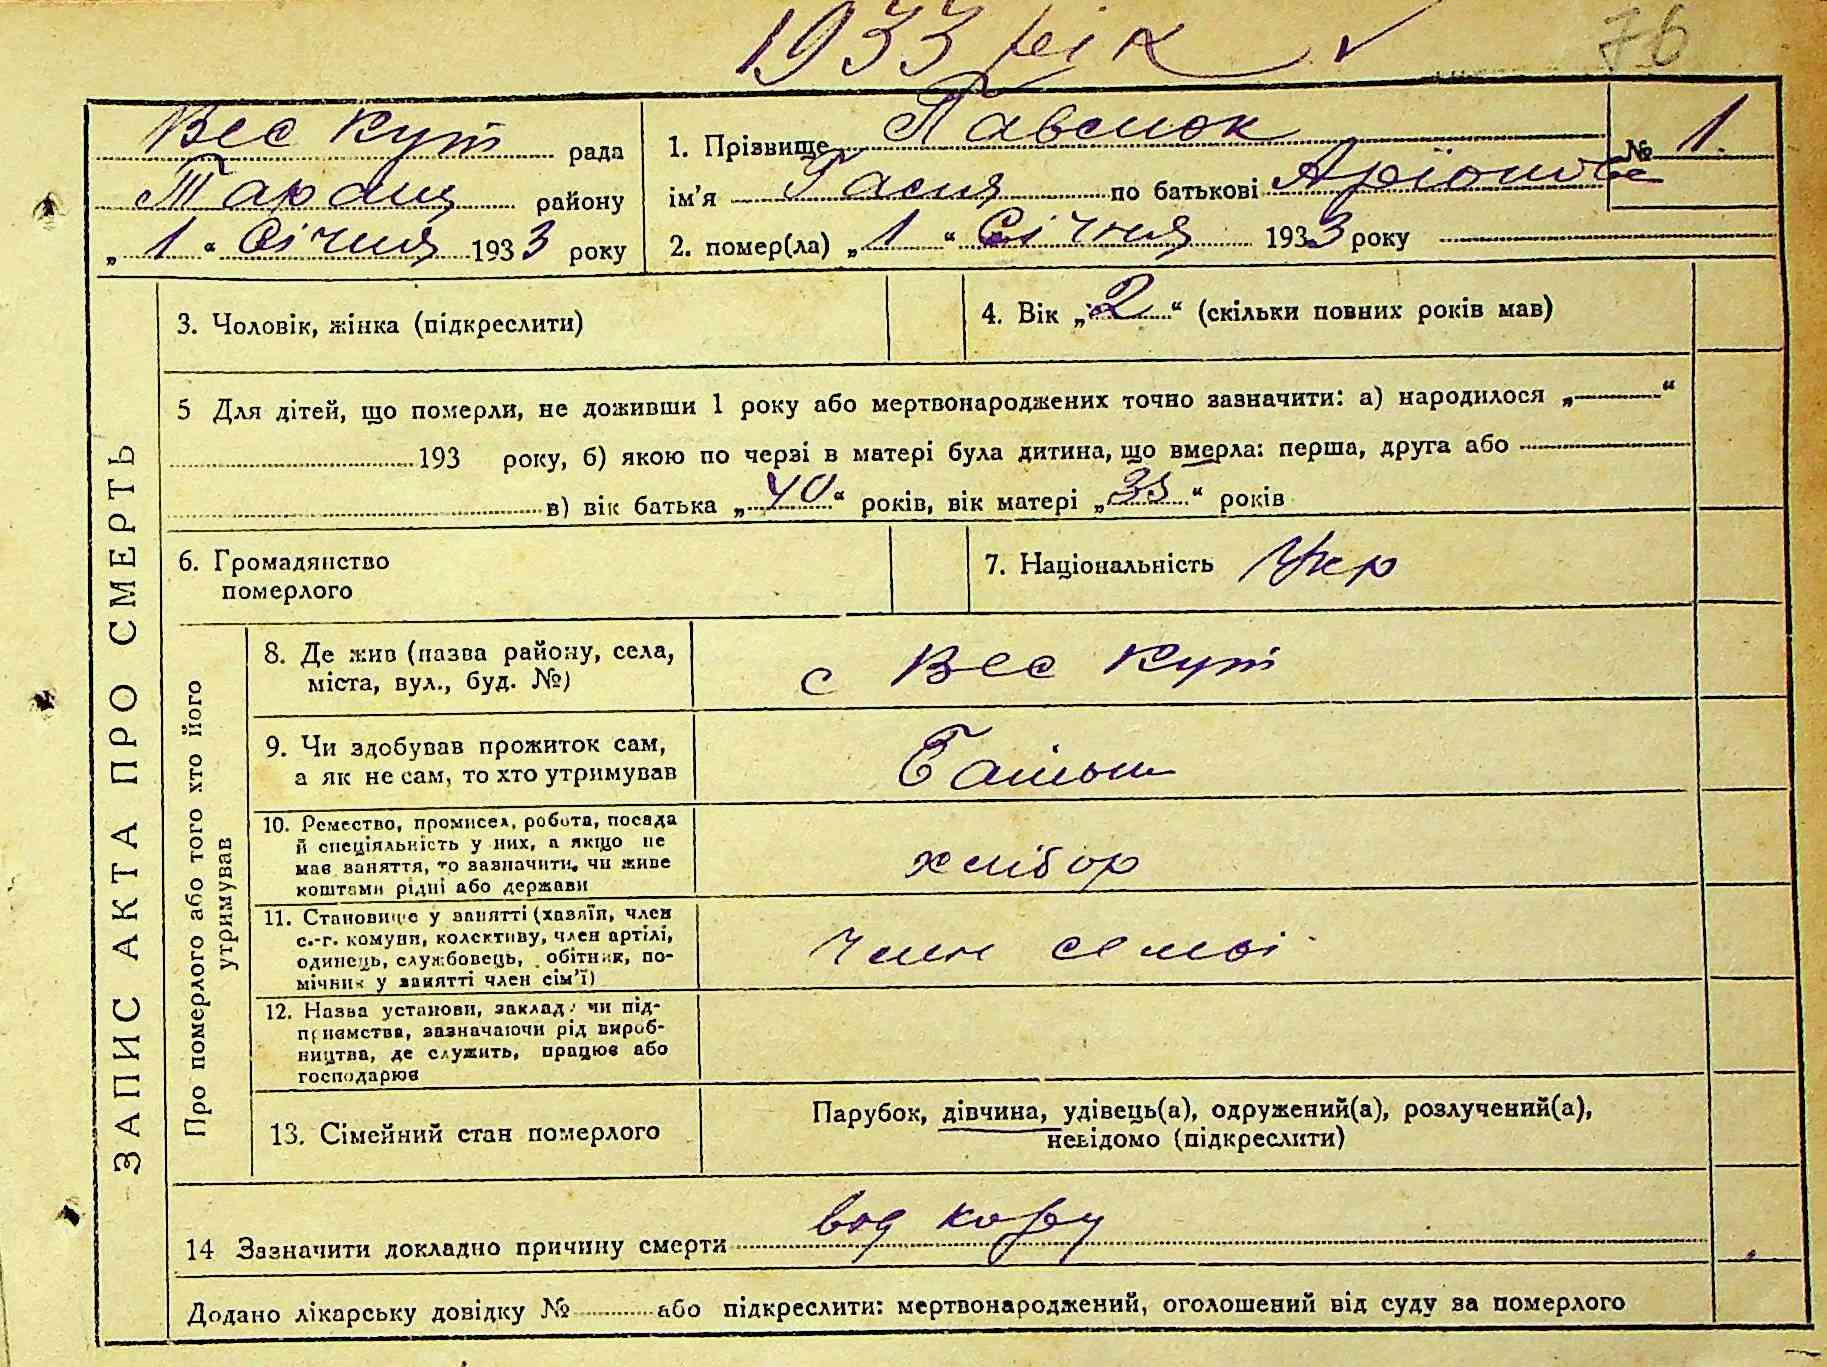 1933 рік 76
Вес Кут рада
Таращ району
„ 1 “ Січня 1933 року
1. Прізвище Павлюк № 1.
ім'я Гася по батькові
2. помер(ла) „ 1 “ Січня 1933 року
ЗАПИС АКТА ПРО СМЕРТЬ
3. Чоловік, жінка (підкреслити)
4. Вік „ 2 “ (скільки повних років мав)
5 Для дітей, що померли, не доживши 1 року або мертвонароджених точно зазначити: а) народилося „ “
193 року, б) якою по черзі в матері була дитина, що вмерла: перша, друга або
в) вік батька „ 40 “ років, вік матері „ 35 “ років
6. Громадянство
померлого
7. Національність Укр
Про померлого або того хто його
утримував
8. Де жив (назва району, села,
міста, вул., буд. №)
с Вес Кут
9. Чи здобував прожиток сам,
а як не сам, то хто утримував
Батьки
10. Ремество, промисел, робота, посада
й спеціяльність у них, а якщо не
має заняття, то зазначити, чи живе
коштами рідні або держави
хлібор
11. Становище у занятті (хазяїн, член
с.-г. комуни, колективу, член артілі,
одинець, службовець, обітник, по-
мічник у занятті член сім'ї)
член семьі
12. Назва установи, заклад чи під-
приємства, зазначаючи рід вироб-
ництва, де служить, працює або
господарює
13. Сімейний стан померлого
Парубок, дівчина, удівець(а), одружений(а), розлучений(а),
невідомо (підкреслити)
14 Зазначити докладно причину смерти вод кору
Додано лікарську довідку № або підкреслити: мертвонароджений, оголошений від суду за померлого